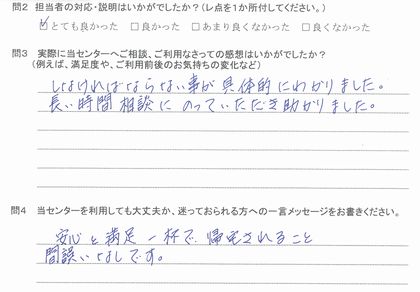 問2 担当者の対応・説明はいかがでしたか?(レ点を1か所付してください。)
☑とても良かった □良かった □あまり良くなかった □良くなかった
問3 実際に当センターへご相談、ご利用なさっての感想はいかがでしたか?
(例えば、満足度や、ご利用前後のお気持ちの変化など)
しなければならない事が具体的にわかりました。
長い時間相談にのっていただき助かりました。
問4 当センターを利用しても大丈夫か、迷っておられる方への一言メッセージをお書きください。
安心と満足一杯で帰宅されること
間誤いなしです。